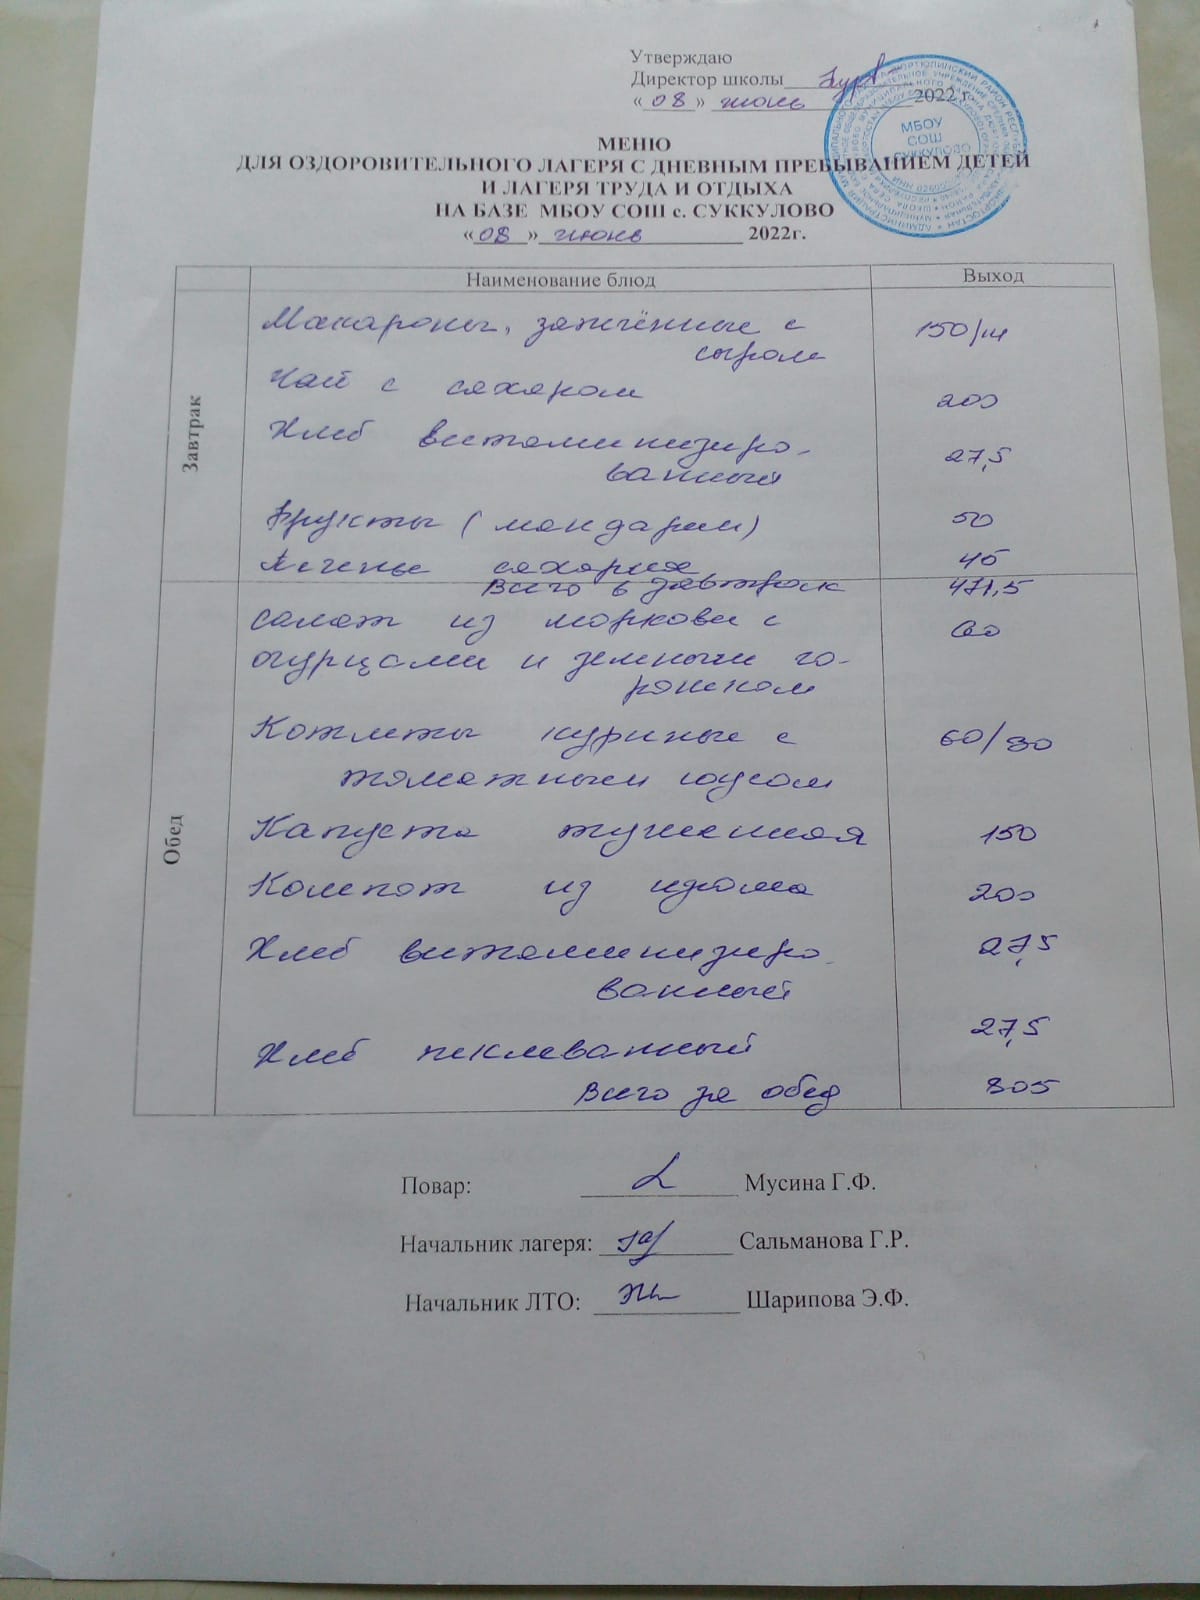 Утверждаю
Директор школы
«08» июнь 2022 г.
МБОУ
СОШ
СУККУЛОВО
МЕНЮ
ДЛЯ ОЗДОРОВИТЕЛЬНОГО ЛАГЕРЯ С ДНЕВНЫМ ПРЕБЫВАНИЕМ ДЕТЕЙ
И ЛАГЕРЯ ТРУДА И ОТДЫХА
НА БАЗЕ МБОУ СОШ с. СУККУЛОВО
«08» июнь 2022г.
Наименование блюд Выход
Завтрак
Макароны, запечённые с 150/
сыром
Чай с сахаром 200
Хлеб витаминизиро- 27,5
ванный
Фрукты (мандарин) 50
Печенье сахарное
Всего в завтрак 471,5
Обед
салат из моркови с
огурцами и зеленым го-
рошком
Котлеты куриные с 60/80
томатным соусом
Капуста тушенная 150
Компот из изюма 200
Хлеб витаминизиро- 27,5
ванный
Хлеб пеклеванный 27,5
Всего за обед 805
Повар: Мусина Г.Ф.
Начальник лагеря: Сальманова Г.Р.
Начальник ЛТО: Шарипова Э.Ф.